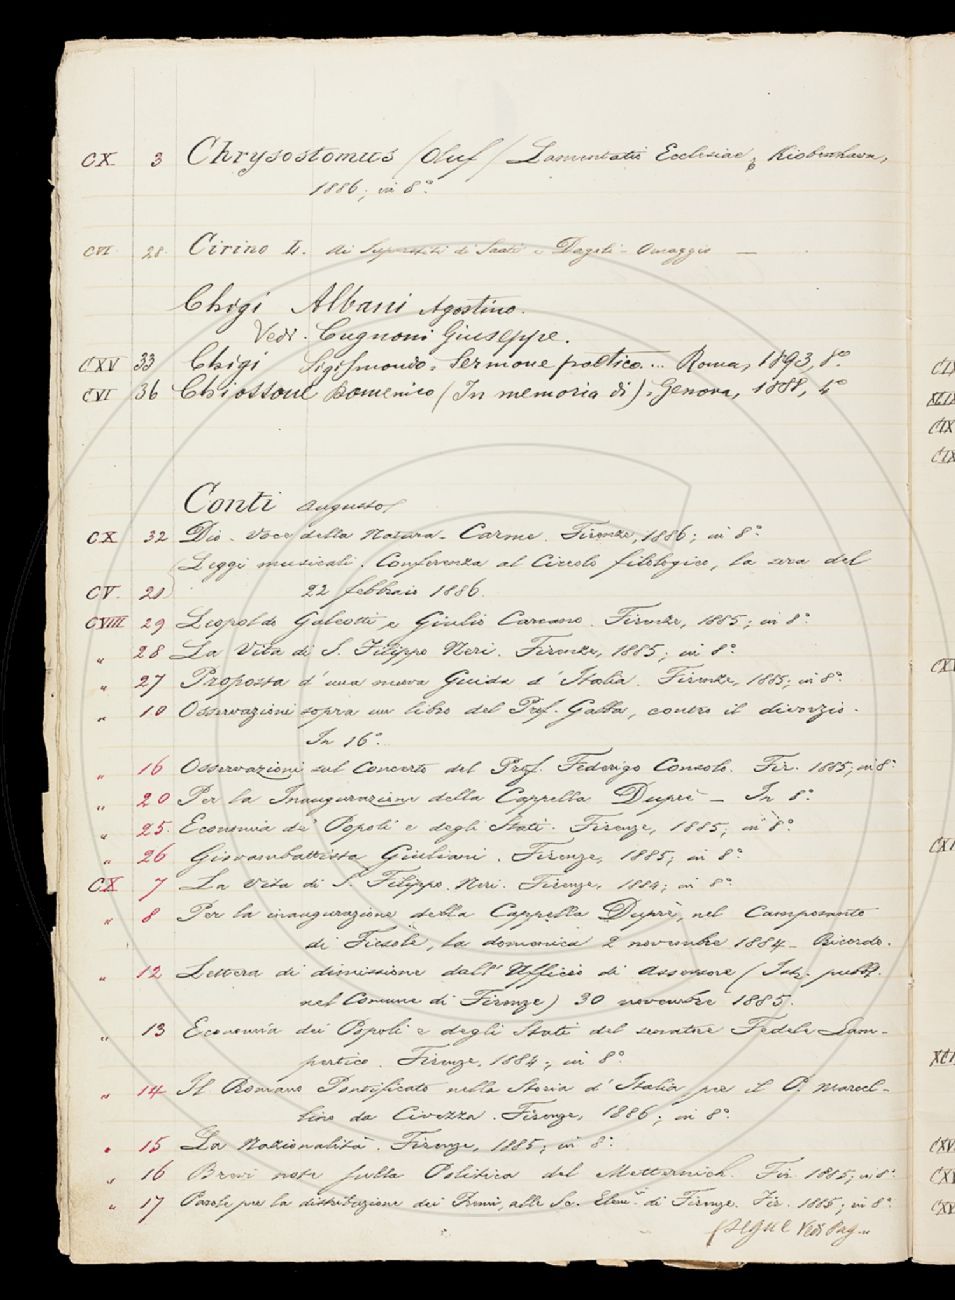 CX 3 Chrysostomus /Oluf/ Lamentatio Ecclesiae, Kiobenhavn,
1886; in 8°.
CVI 28 Cirino L. Ai Superstiti di Saati e Dogali - Omaggio —
Chigi Albani Agostino.
Vedi. Cugnoni Giuseppe.
CXV 33 Chigi Sigismondo. Sermone poetico... Roma, 1893, 8°.
CVI 36 Chiossone Domenico (In memoria di). Genova, 1888, 4°
Conti Augusto
CX 32 Dio. Voce della Natura - Carme. Firenze, 1886; in 8°
Leggi musicali. Conferenza al Circolo filologico, la sera del
CV 21 22 febbraio 1886.
CVIII 29 Leopoldo Galeotti e Giulio Carcano. Firenze, 1885; in 8°
" 28 La Vita di S. Filippo Neri. Firenze, 1885; in 8°.
" 27 Proposta d'una nuova Guida d'Italia. Firenze, 1885; in 8°
" 10 Osservazioni sopra un libro del Prof. Gabba, contro il divorzio.
In 16°.
" 16 Osservazioni sul Concerto del Prof. Federigo Consolo. Fir. 1885; in 8°
" 20 Per la Inaugurazione della Cappella Duprè — In 8°.
" 25. Economia de' Popoli e degli Stati. Firenze, 1885; in 8°.
" 26 Giovambattista Giuliani. Firenze, 1885; in 8°.
CX 7 La Vita di S. Filippo Neri. Firenze, 1884; in 8°
" 8 Per la inaugurazione della Cappella Duprè, nel Camposanto
di Fiesole, la domenica 2 novembre 1884 - Ricordo.
" 12 Lettera di dimissione dall'Ufficio di Assessore (Istr. pubb.
nel Comune di Firenze) 30 novembre 1885.
" 13 Economia dei Popoli e degli Stati del senatore Fedele Lam-
pertico. Firenze, 1884; in 8°.
" 14 Il Romano Pontificato nella Storia d'Italia per il P. Marcel-
lino da Civezza. Firenze, 1886; in 8°.
" 15 La Nazionalità. Firenze, 1885; in 8°.
" 16 Brevi note sulla Politica del Metternich. Fir. 1885; in 8°.
" 17 Parole per la distribuzione dei Premi, alle Sc. Elem. di Firenze. Fir. 1885; in 8°.
segue Vedi Pag.